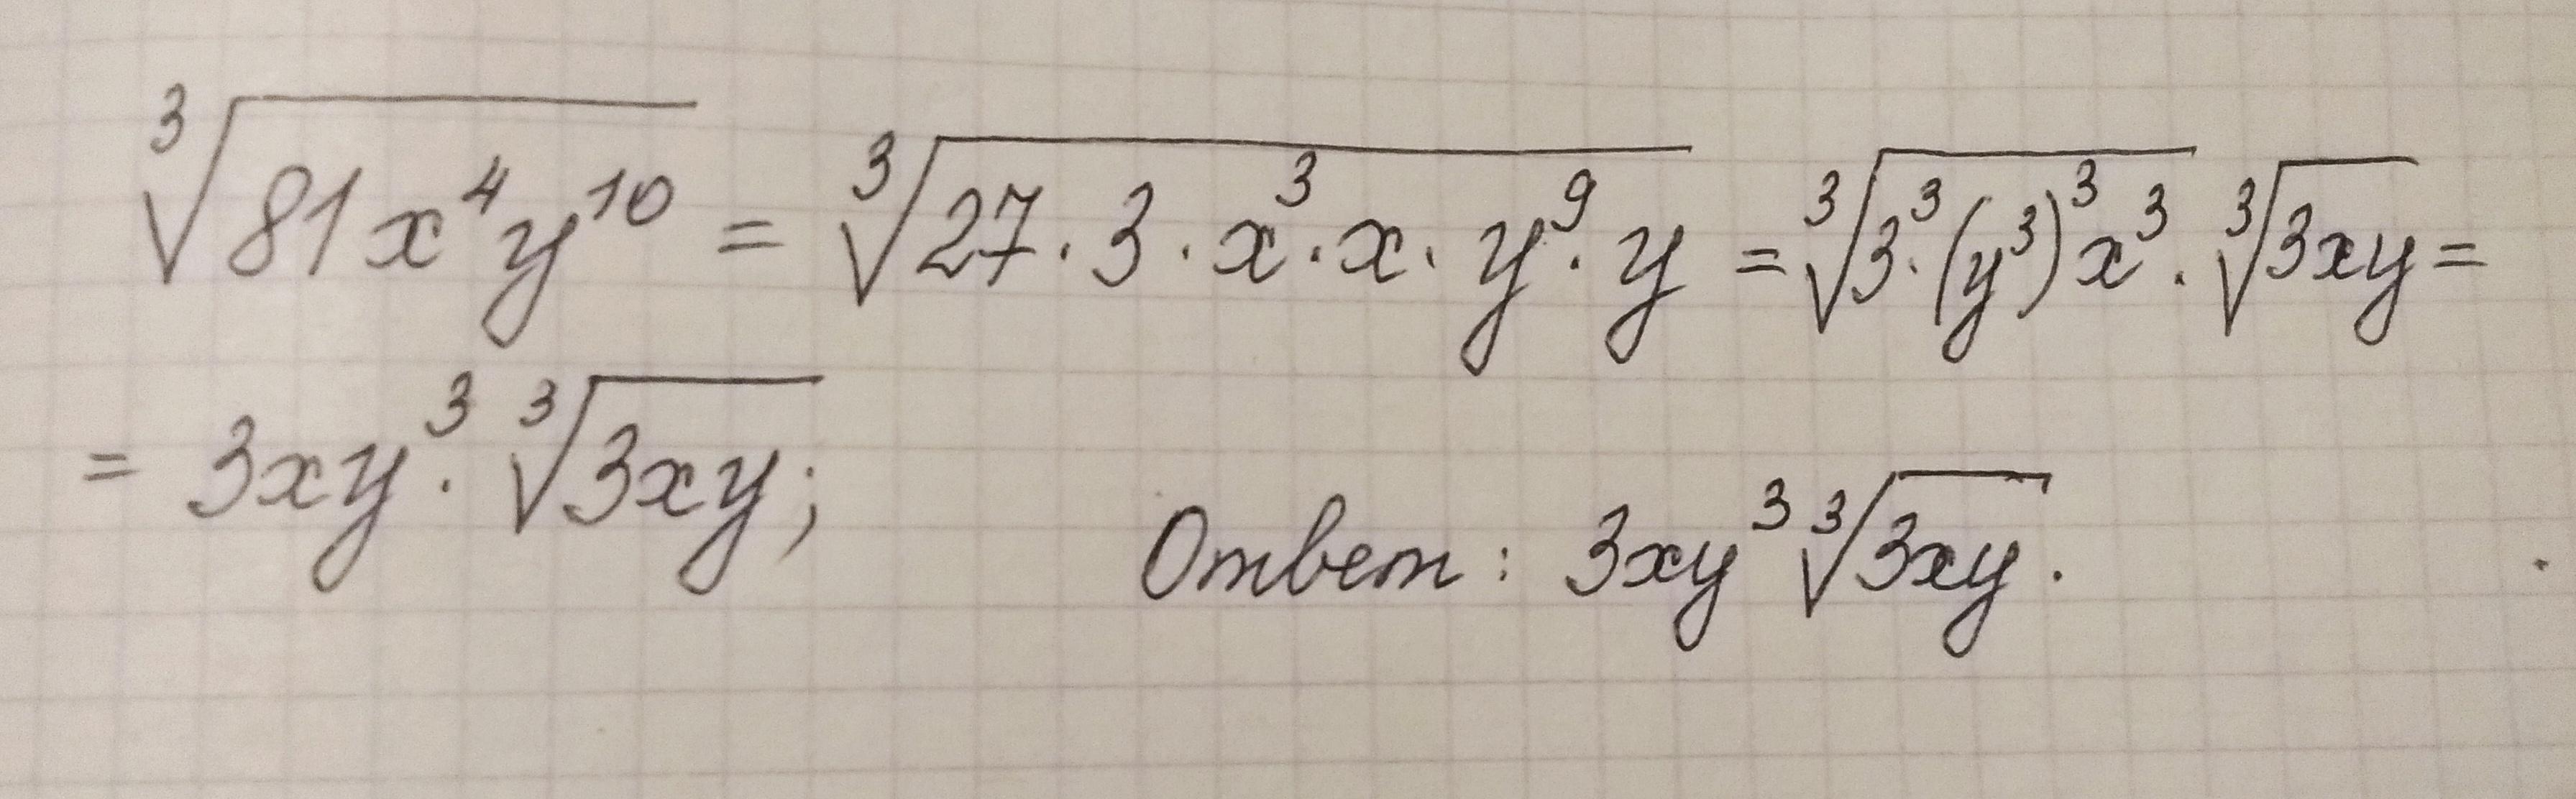 ∛(81x⁴y¹⁰) = ∛(27·3·x³·x·y⁹·y) = ∛(3³·(y³)³x³)·∛(3xy) =
= 3xy³·∛(3xy);
Ответ: 3xy³∛(3xy).